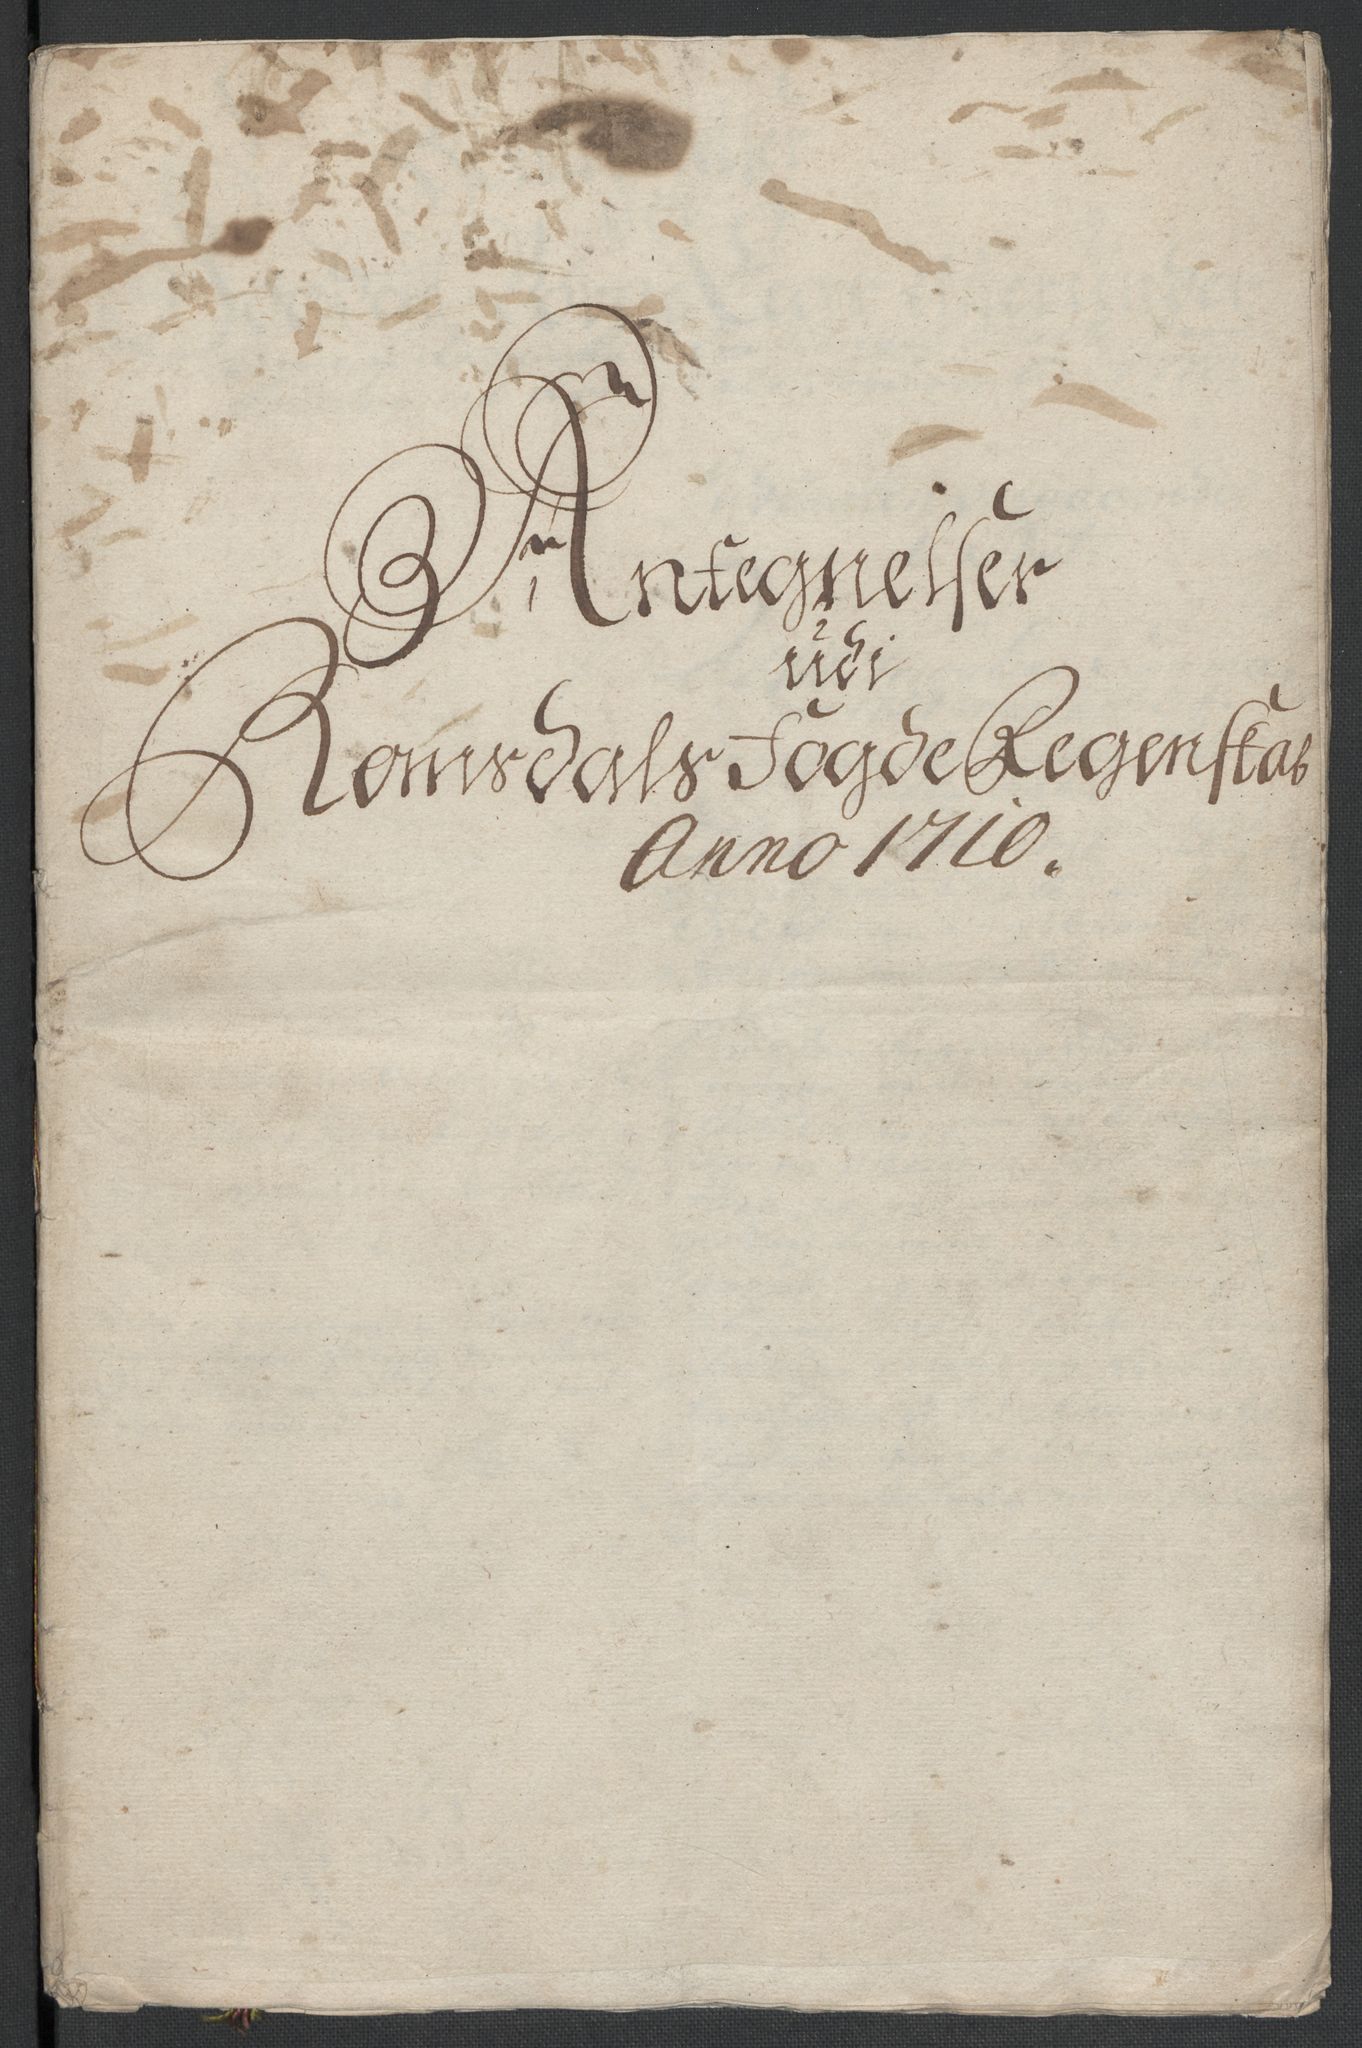 Antegnelser
udi
Romsdals Fogde Regenskab
Anno 1710.